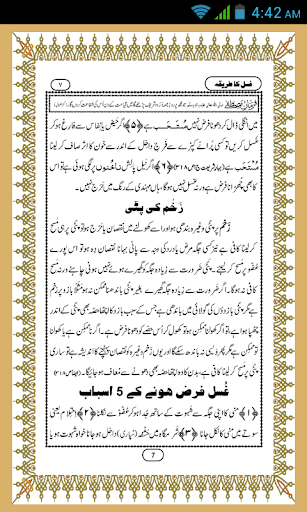 4:42 AM
غسل کا طریقہ
۷
میں انگلی ڈال کر دھونا فرض نہیں مُسْتَحَب ہے ﴿۵﴾ اگر حیض یا نفاس سے فارغ ہو کر
غسل کریں تو کسی پرانے کپڑے سے فرج کے داخل کے اندر سے خون کا اثر صاف کر لینا
مُسْتَحَب ہے ﴿۶﴾ اگر نیل پالش ناخنوں پر لگی ہوئی ہے تو اس
کا بھی چھڑانا فرض ہے ورنہ غسل نہیں ہوگا، ہاں مہندی کے رنگ میں حرج نہیں۔
زَخْم کی پٹّی
زخم پر پٹی وغیرہ بندھی ہو اور اسے کھولنے میں نقصان یا حرج ہو تو پٹی پر ہی مسح
کر لینا کافی ہے نیز کسی جگہ مرض یا درد کی وجہ سے پانی بہانا نقصان دہ ہو تو اس پورے
عضو پر مسح کر لیجئے۔ پٹی ضرورت سے زیادہ جگہ کو گھیرے ہوئے نہیں ہونی چاہئے ورنہ مسح
کافی نہ ہوگا۔ اگر ضرورت سے زیادہ جگہ گھیرے بغیر پٹی باندھنا ممکن نہ ہو مثلاً بازو پر زخم
ہے مگر پٹی بازوؤں کی گولائی میں باندھی ہے جس کے سبب بازو کا اچھا حصہ بھی پٹی کے اندر
چھپا ہوا ہے، تو اگر کھولنا ممکن ہو تو کھول کر اس حصے کو دھونا فرض ہے۔ اگر ناممکن ہے یا کھولنا
تو ممکن ہے مگر پھر ویسی نہ باندھ سکے گا اور یوں زخم وغیرہ کو نقصان پہنچنے کا اندیشہ ہے تو ساری
پٹی پر مسح کر لینا کافی ہے، بدن کا وہ اچھا حصہ بھی دھونے سے معاف ہو جائے گا۔
غُسل فرض ہونے کے 5 اسباب
﴿۱﴾ منی کا اپنی جگہ سے شہوت کے ساتھ جدا ہو کر عضو سے نکلنا ﴿۲﴾ احتلام یعنی
سوتے میں منی کا نکل جانا ﴿۳﴾ شرمگاہ میں حشفہ (سپاری) داخل ہو جانا خواہ شہوت ہو یا
7